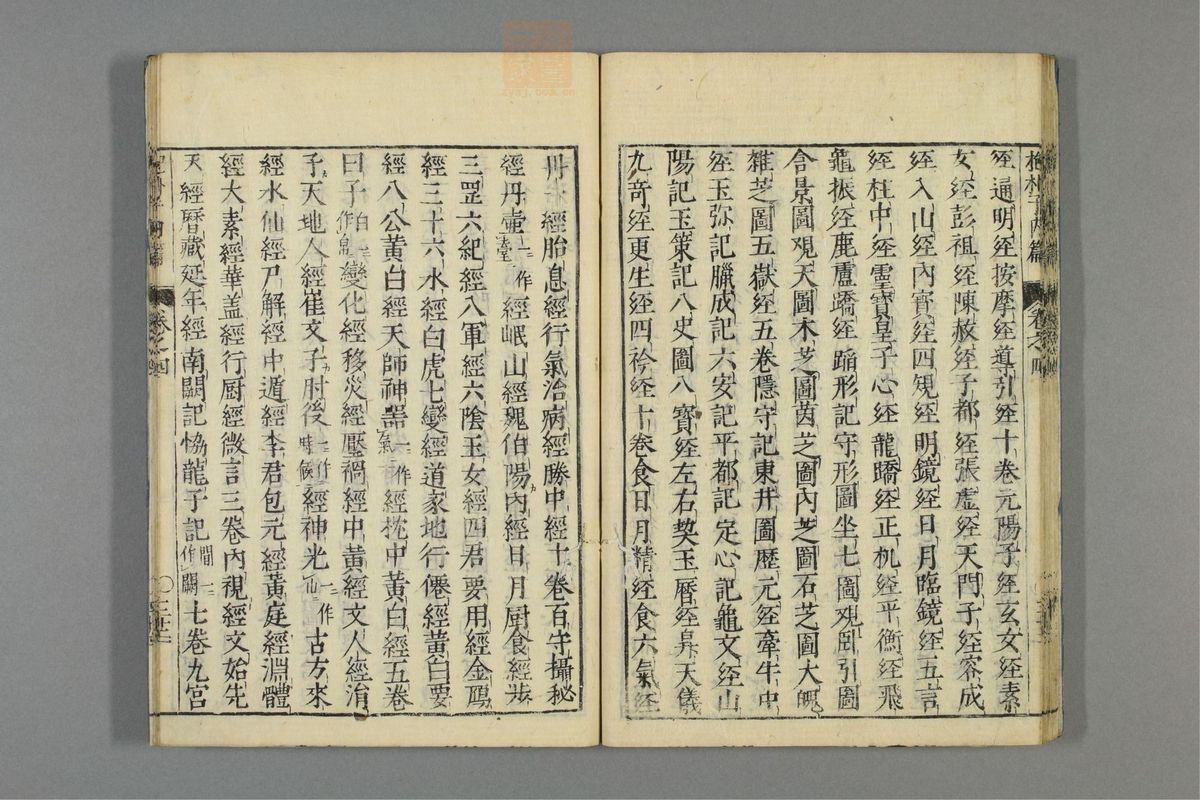 抱朴子內篇 卷之四
經通明經按摩經導引經十卷元陽子經玄女經素
女經彭祖經陳赦經子都經張虛經天門子經容成
經入山經內寶經四規經明鏡經日月臨鏡經五言
經柱中經靈寶皇子心經龍蹻經正机經平衡經飛
龜振經鹿盧蹻經蹈形記守形圖坐亡圖观臥引圖
含景圖观天圖木芝圖菌芝圖肉芝圖石芝圖大魄
雜芝圖五嶽經五卷隱守記東井圖歷元經牽牛中
經玉弥記臘成記六安記平都記定心記龜文經山
陽記玉策記八史圖八寶經左右契玉曆經昇天儀
九奇經更生經四衿經十卷食日月精經食六氣經
丹一經胎息經行氣治病經勝中經十卷百守攝秘
經丹壺一作臺經岷山經魏伯陽內經日月厨食經步
三罡六紀經入軍經六陰玉女經四君要用經金鴈
經三十六水經白虎七變經道家地行僊經黃白要
經八公黃白經天師神器一作氣經枕中黃白經五卷
白子一作帛變化經移災經壓禍經中黃經文人經涓
子天地人經崔文子肘後一作時候經神光一作仙占方來
經水仙經尸解經中遁經李君包元經黃庭經淵體
經大素經華盖經行厨經微言三卷內視經文始先
天經曆藏延年經南闕記協龍子記一作闢七卷九宮
卷之四